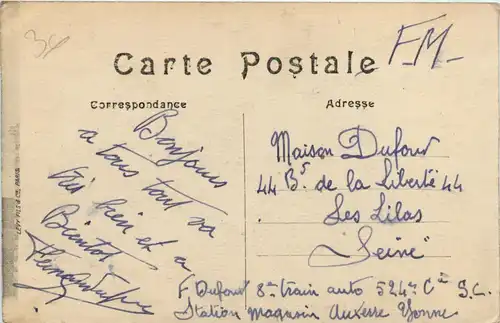 34
F-M-
Carte Postale
Correspondance
Adresse
Bonjour
a tous tout va
très bien et a
Bientot
Maison Dufour
44 Bd de la Liberté 44
Les Lilas
Seine"
F Dufour 8me train auto 524me Cie S.C.
Station Magasin Auxerre Yonne
LEVY FILS & Cie PARIS